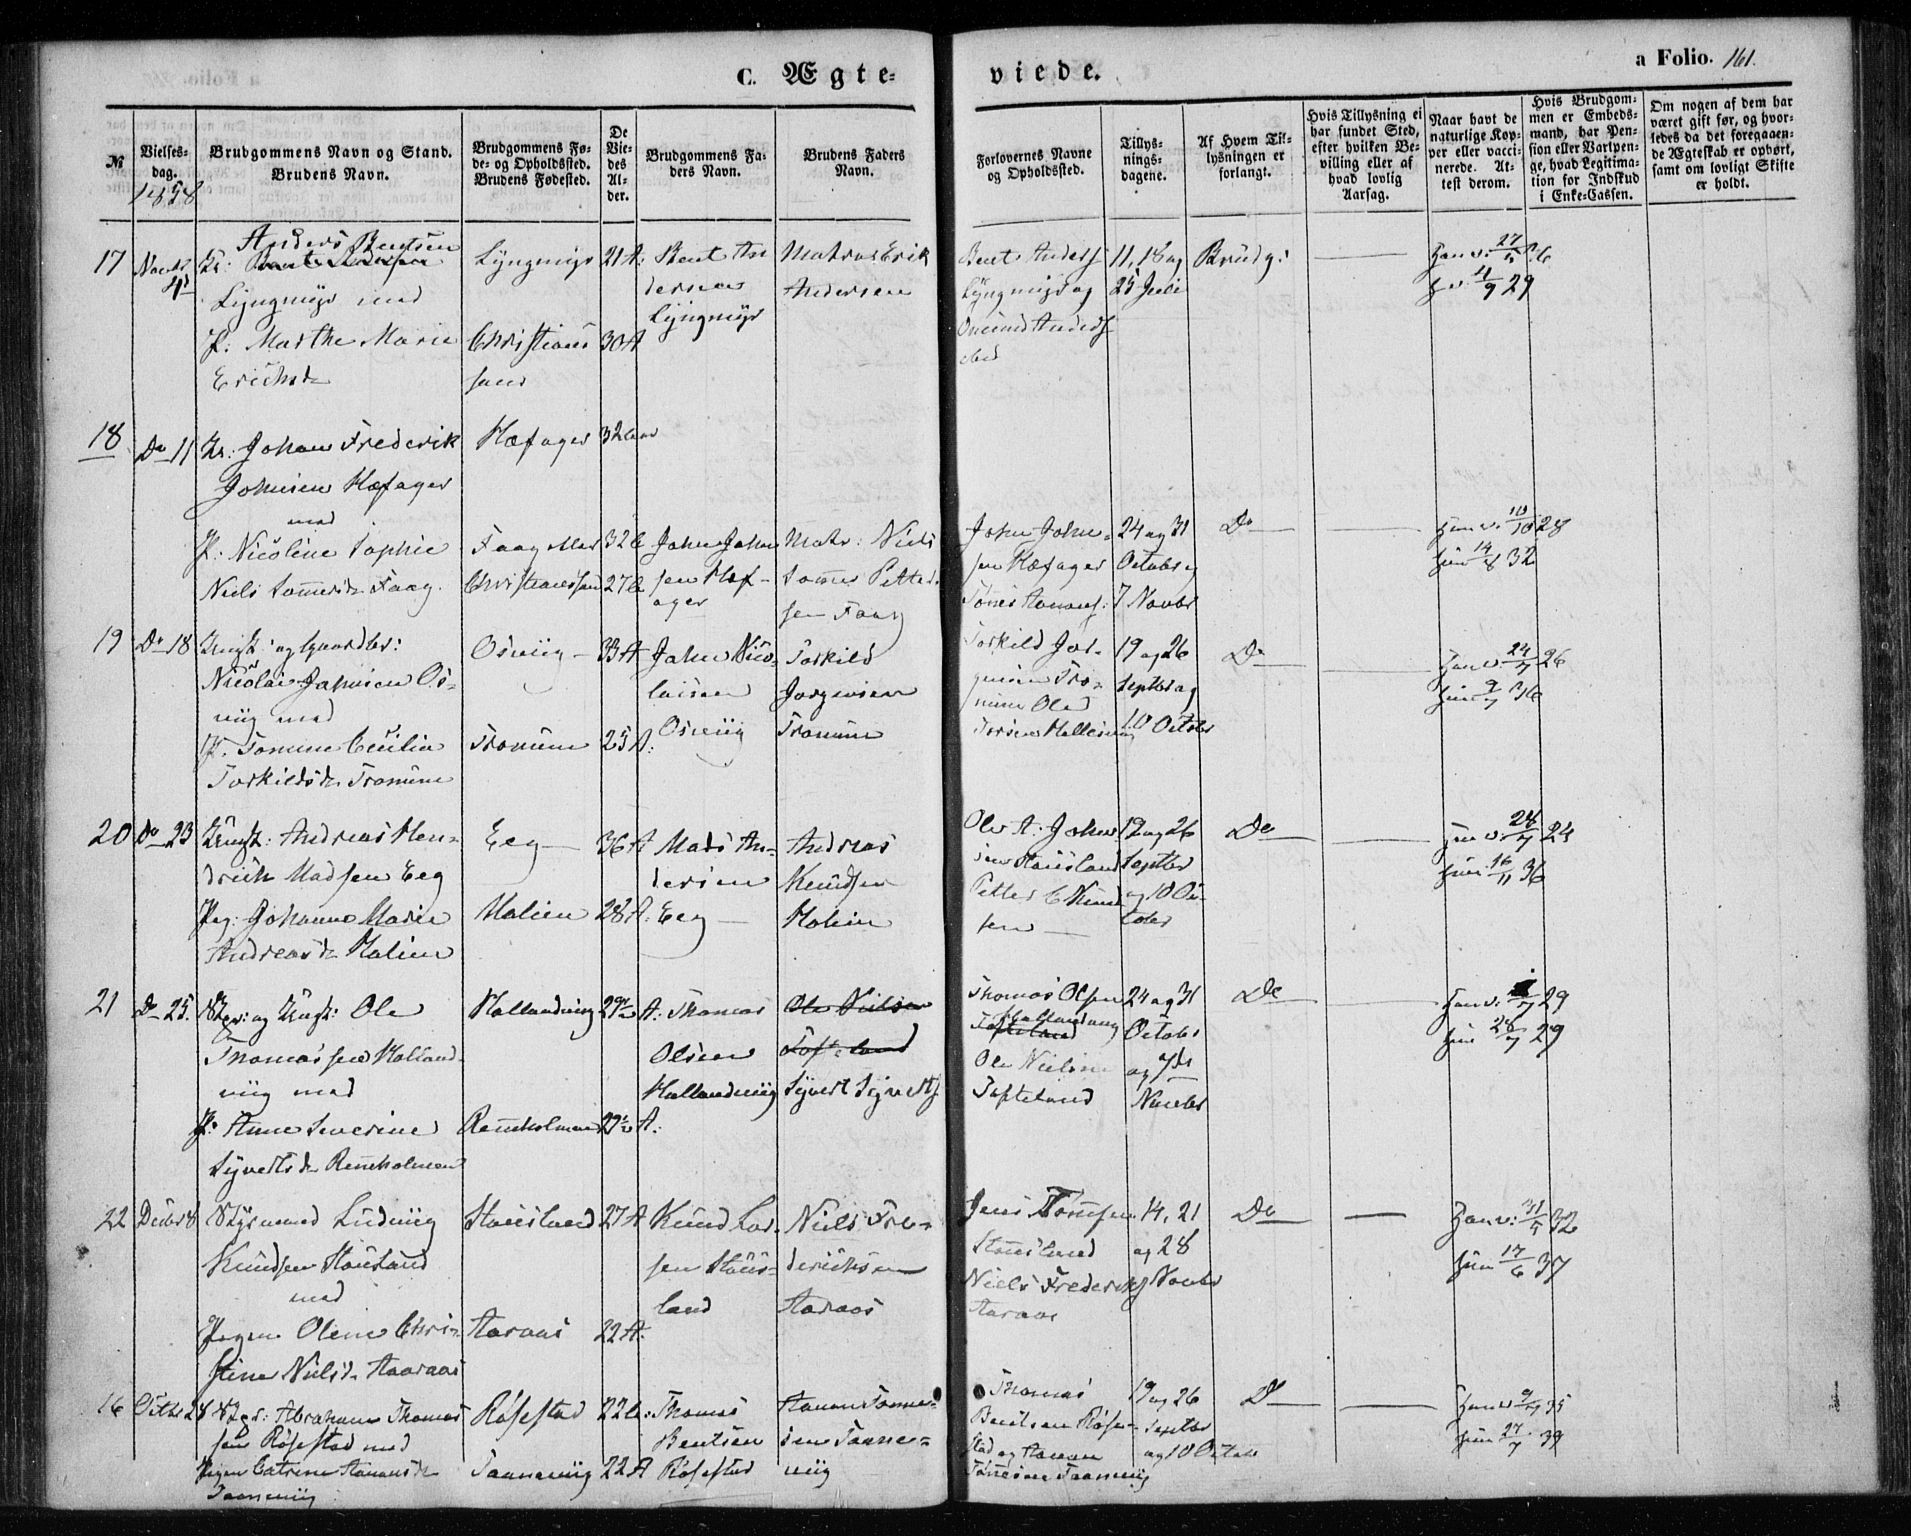 C. Ægteviede.
a Folio. 161.
№
Vielsesdag.
Brudgommens Navn og Stand. Brudens Navn.
Brudgommens Føde- og Opholdssted. Brudens Fødested.
De Viedes Alder.
Brudgommens Faders Navn.
Brudens Faders Navn.
Forlovernes Navne og Opholdssted.
Tillysningsdagene.
Af Hvem Tillysningen er forlangt.
Hvis Tillysning ei har fundet Sted, efter hvilken Bevilling eller af hvad lovlig Aarsag.
Naar havt de naturlige Kopper eller vaccinerede. Attest derom.
Hvis Brudgommen er Embedsmand, har Pension eller Vartpenge, hvad Legitimation for Indskud i Enke-Cassen.
Om nogen af dem har været gift før, og hvorledes da det foregaaende Ægteskab er ophørt, samt om lovligt Skifte er holdt.
1858
17
Novbr 4de
Anders Bentsen
Lyngmyr med
P: Marthe Marie
Erichsdr
Lyngmyr
Christianssand
21 A:
30 A
Bent Andersen
Lyngmyr
Matros Erik
Andersen
Bent Anders
Lyngmyr og
11, 18 og
25 Juli
Brudg:
Han v. 27/5 26
h v. 11/9 29
18
Do 11
Johan Frederik
Johnsen Kæfager
med
P: Nicoline Sophie
Niels Sommersdr Faag
Kæfager
32 Aar
Christianssand
27
John Johnsen Kæfager
Matr: Niels
Faag
John Johnsen Kæfager
24 og 31
October
7 Novbr
Do
Han v. 10/10 28
hun 14/8 32
19
Do 18
Nicolai Johnsen Osviig med
P. Tomine Cecilia
Torkildsdr Tromme
Osviig
Tromme
33 A
25 A:
John Nicolaisen
Osviig
Torkild
Jørgensen
Tromme
Torkild Jørgensen Tromme
19 og 26
Septbr og
10 Octobr
Do
Han v. 24/7 26
hun 9/7 36
20
Do 23
Ungk: Andreas Hendrich Madsen Eeg
Pg: Johanne Marie
Andreasdr Malien
Eeg
Malien
36 A
28 A:
Mads Andersen
Eeg
Andreas
Knudsen
Malien
Ole A: Johnsen Stausland
Petter C Knudsen
19 og 26
Septbr
og 10 October
Do
Han v. 28/7 24
hun 16/11 36
21
Do 25.
og Ungk: Ole
Thomassen Hallandviig med
P: Anne Severine
Syvertsdr Renneholmen
Hallandviig
Renneholmen
29
A: Thomas
Olsen
Hallandviig
Ole Nielsen
Tofteland
Syvert Syverts
Thomas Olsen
Hallandviig
Tofteland
Ole Nielsen
Tofteland
24 og 31
October
og 7de
Novbr
Do
Han v: 29
hun 28/7 29
22
Decbr 8
Styrmand Ludvig
Knudsen Stausland
med
Pigen Olene Christine Nielsdr Aaraas
Stausland
Aaraas
27 A
22 A.
Knud Larsen Stausland
Niels Frederichsen
Aaraas
Jens Tønnesen
Stausland
Niels Frederiks
Aaraas
14, 21
og 28
Novbr
Do
Han v: 31/5 32
hun 17/6 37
16
Octbr 28
Abraham Thomassen Røsestad med
Pigen Catrine Aanensdr
Taanevig
Røsestad
Taanevig
22
22 A
Thomas
Bentsen
Røsestad
Aanen Tønnesen Taanevig
Thomas
Bentsen Røsestad og Aanen
Tønnesen Taanevig
19 og 26
Septbr
og 10 Octobr
Do
Han v 9/7 35
hun 27/7 39